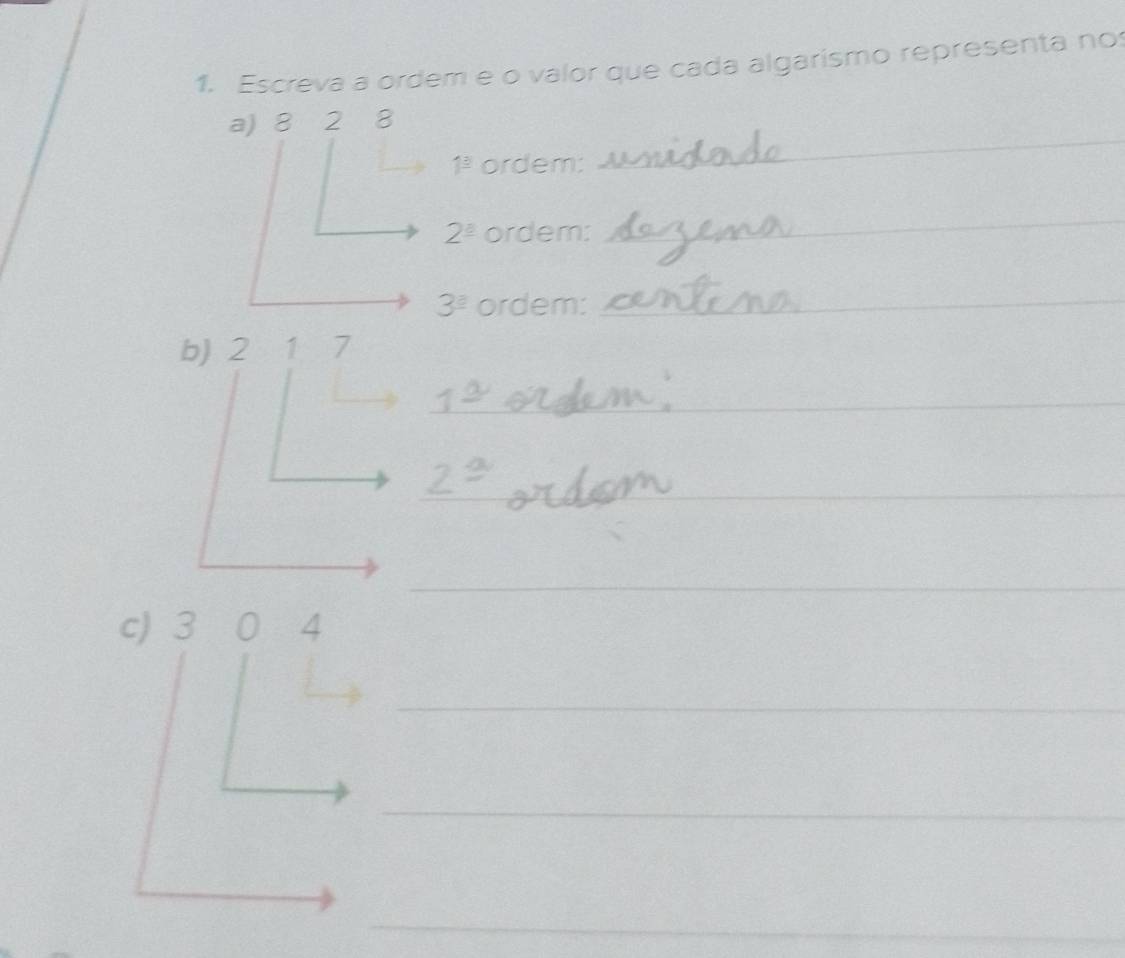 1. Escreva a ordem e o valor que cada algarismo representa nos
a) 8 2 8
1ª ordem: unidade
2ª ordem: dezema
3ª ordem: centena
b) 2 1 7
1ª ordem:
2ª ordem
c) 3 0 4